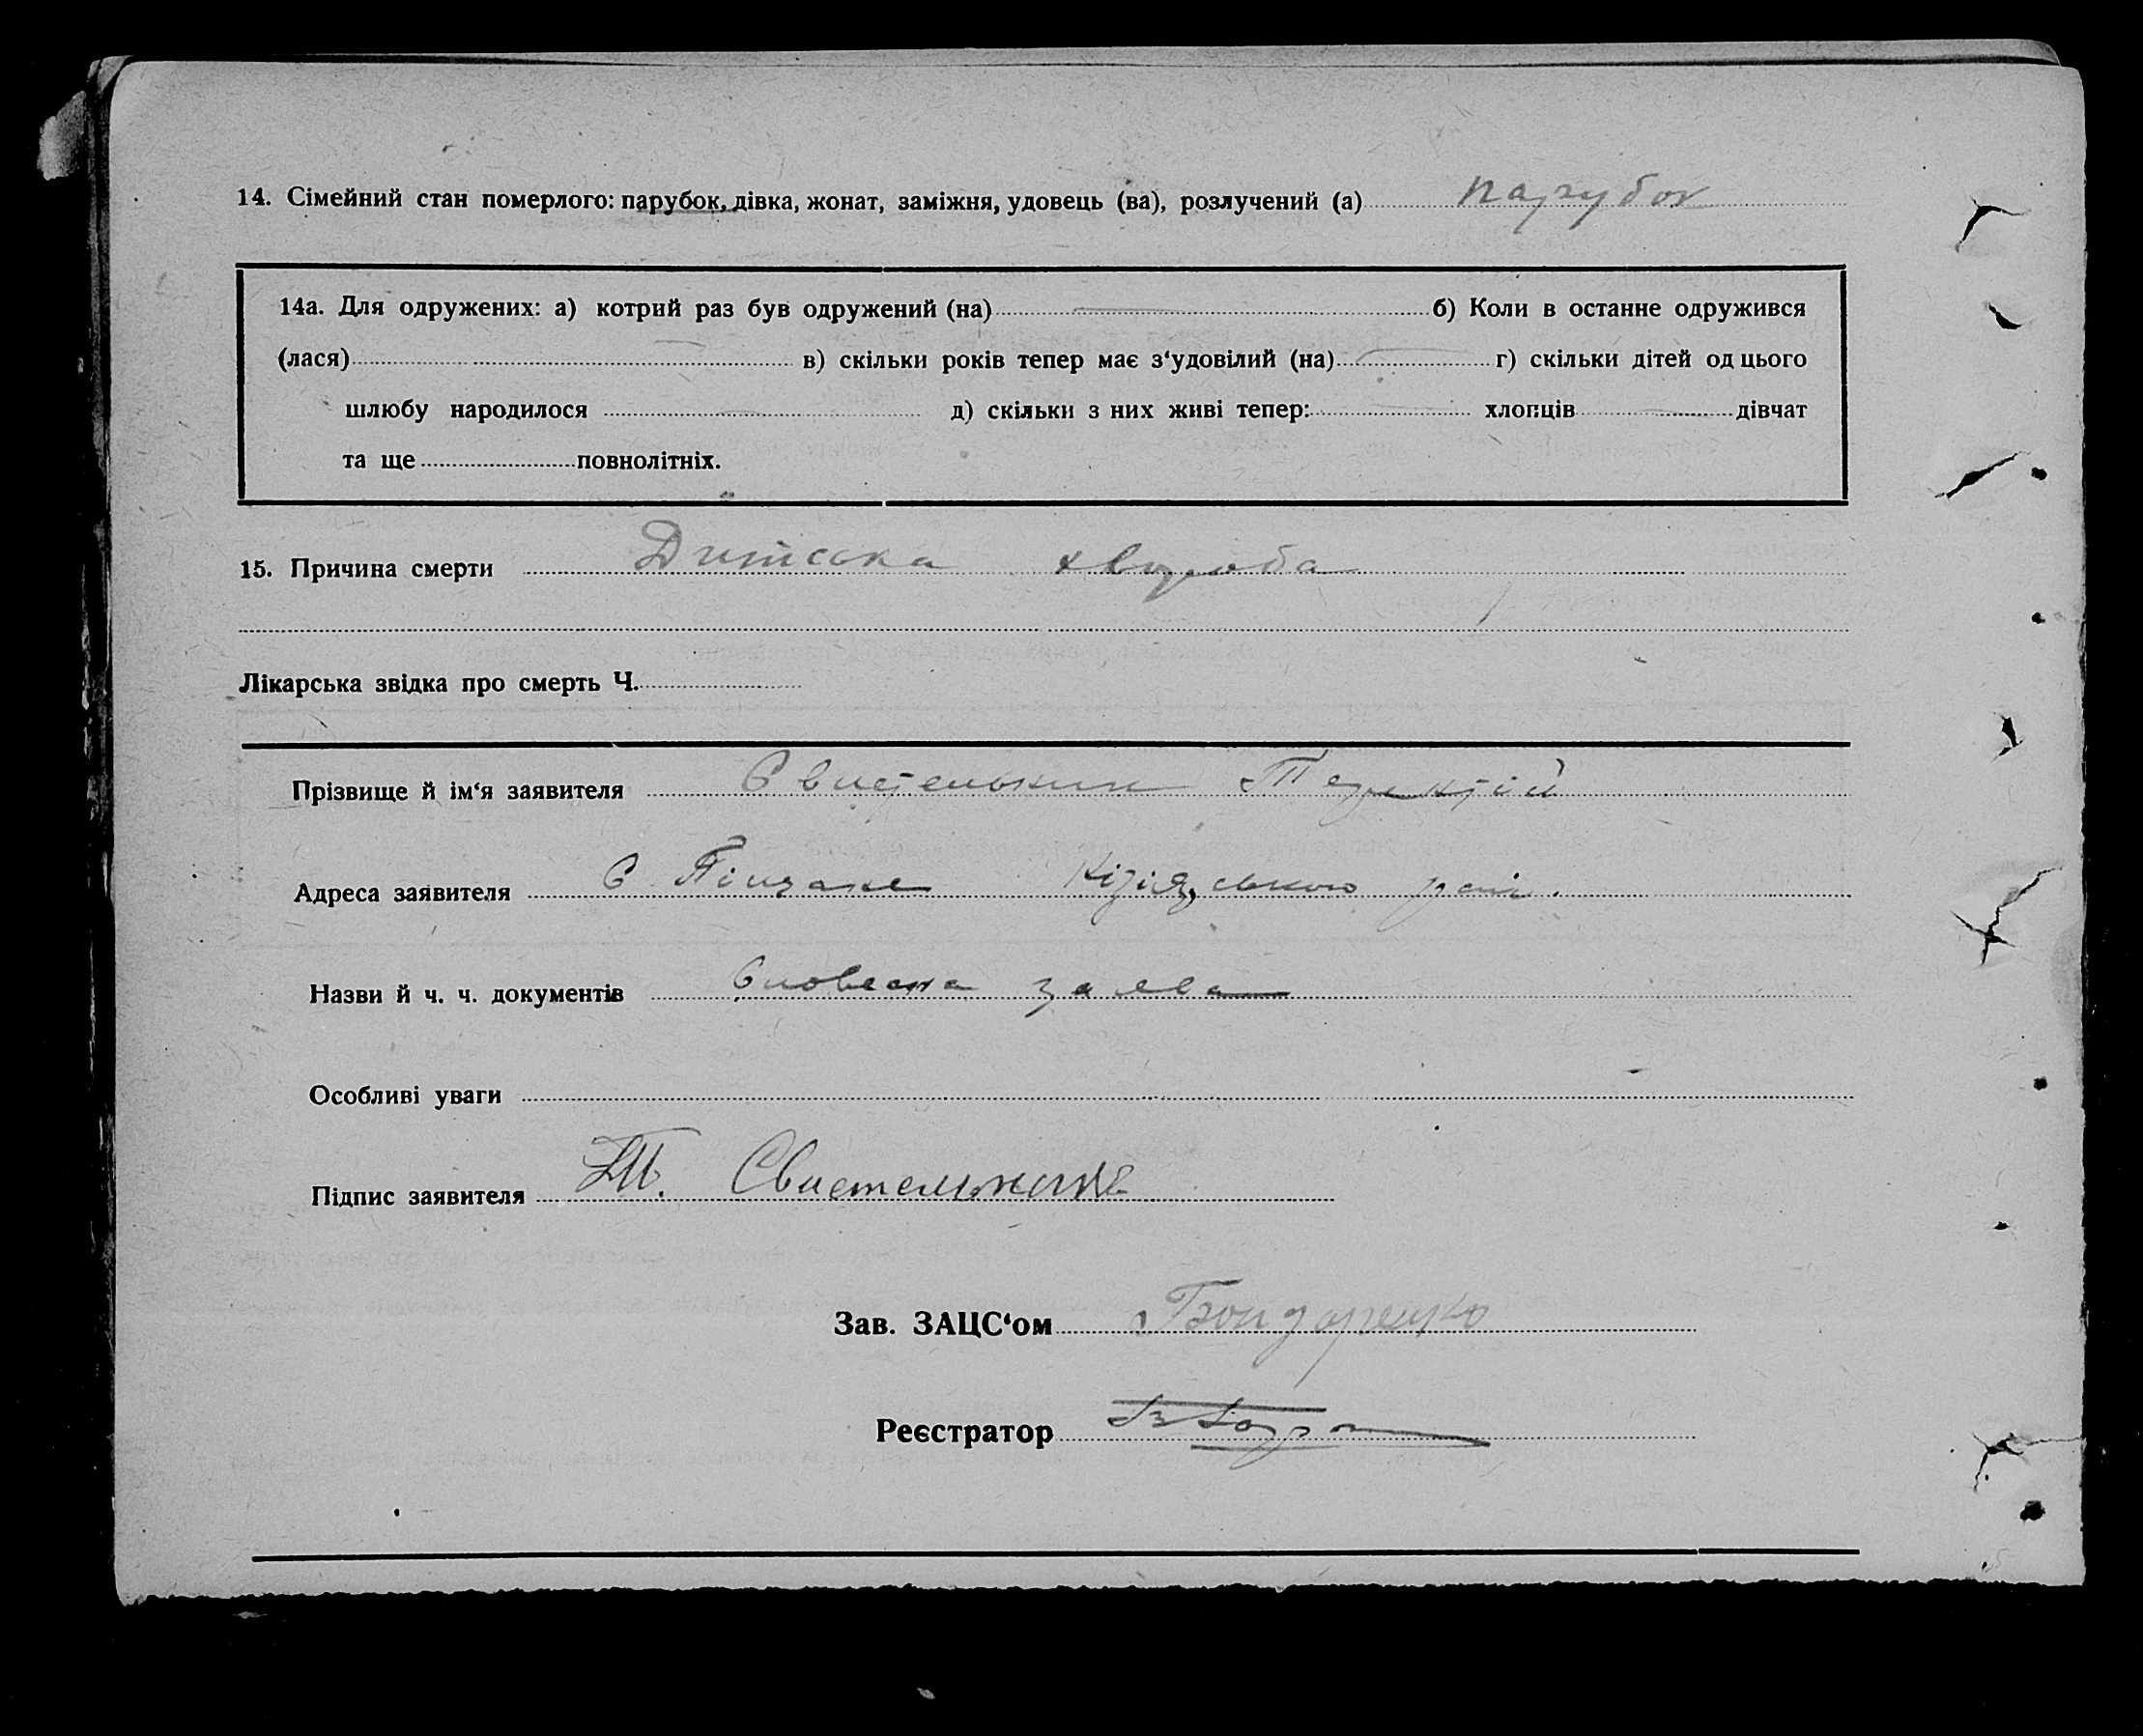 14. Сімейний стан померлого: парубок, дівка, жонат, заміжня, удовець (ва), розлучений (а) парубок
14а. Для одружених: а) котрий раз був одружений (на) б) Коли в останне одружився
(лася) в) скільки років тепер має з‘удовілий (на) г) скільки дітей од цього
шлюбу народилося д) скільки з них живі тепер: хлопців дівчат
та ще повнолітніх.
15. Причина смерти Дитська хвороба
Лікарська звідка про смерть Ч.
Прізвище й ім‘я заявителя Свистельник
Адреса заявителя С Піщане
Назви й ч. ч. документів Словесна заява
Особливі уваги
Підпис заявителя Т. Свистельник
Зав. ЗАЦС‘ом Бондаренко
Реєстратор